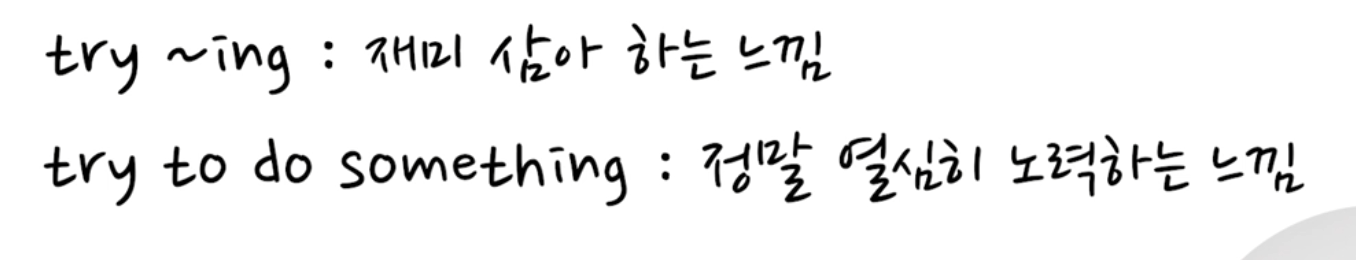 try ~ing : 재미 삼아 하는 느낌
try to do something : 정말 열심히 노력하는 느낌